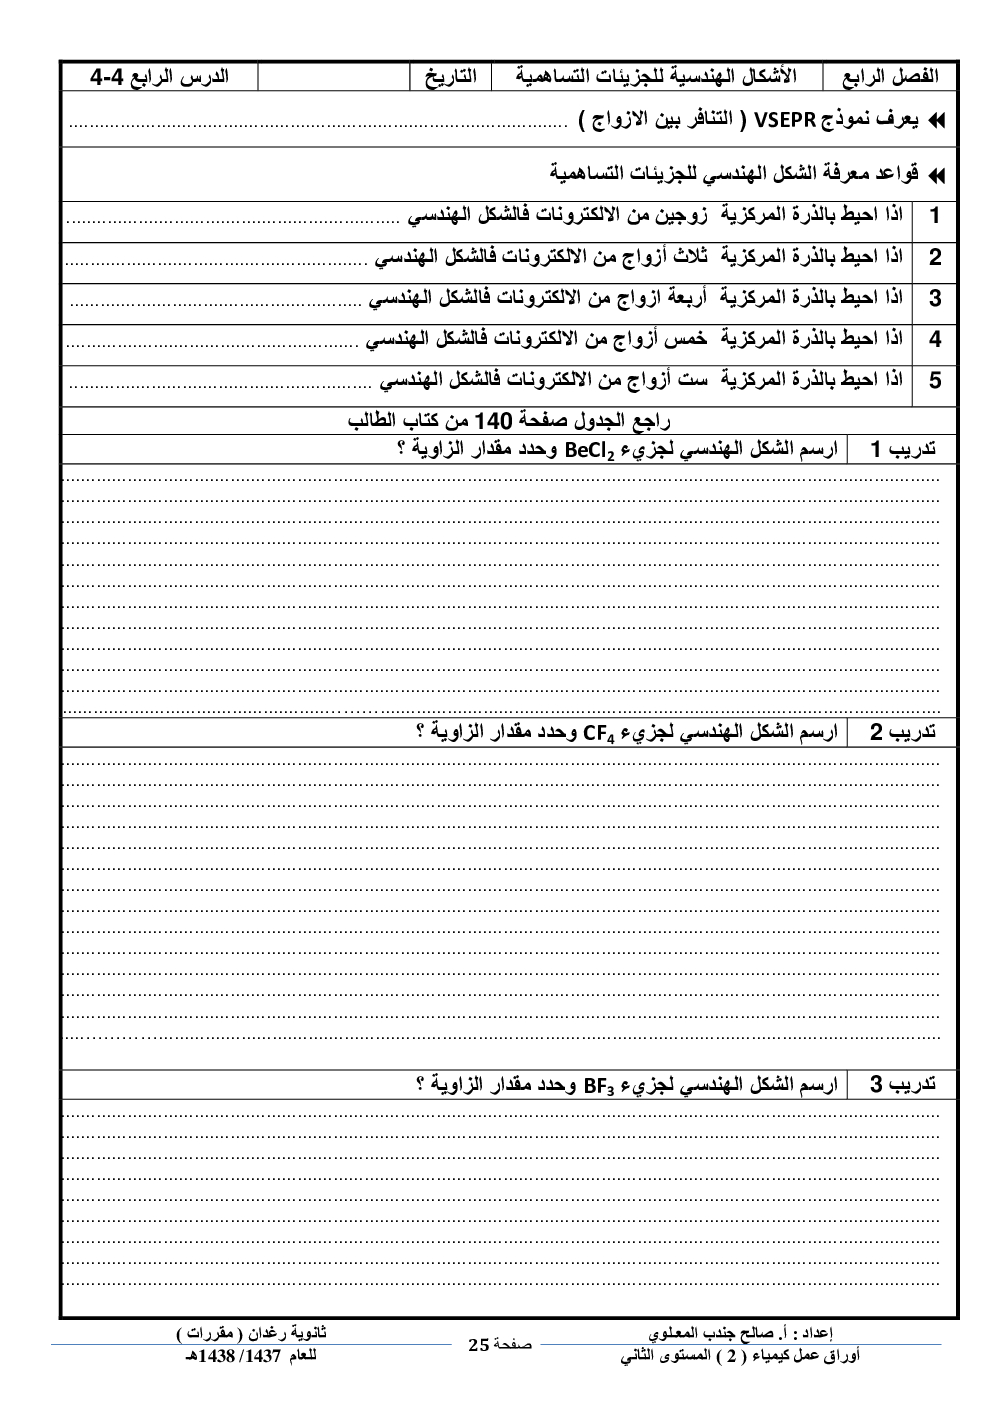 الفصل الرابع الأشكال الهندسية للجزيئات التساهمية التاريخ الدرس الرابع 4-4
يعرف نموذج VSEPR ( التنافر بين الازواج ) ................................................................................................
قواعد معرفة الشكل الهندسي للجزيئات التساهمية
1 اذا احيط بالذرة المركزية زوجين من الالكترونات فالشكل الهندسي ................................................................
2 اذا احيط بالذرة المركزية ثلاث أزواج من الالكترونات فالشكل الهندسي ..........................................................
3 اذا احيط بالذرة المركزية أربعة ازواج من الالكترونات فالشكل الهندسي ........................................................
4 اذا احيط بالذرة المركزية خمس أزواج من الالكترونات فالشكل الهندسي ........................................................
5 اذا احيط بالذرة المركزية ست أزواج من الالكترونات فالشكل الهندسي ..........................................................
راجع الجدول صفحة 140 من كتاب الطالب
تدريب 1 ارسم الشكل الهندسي لجزيء BeCl₂ وحدد مقدار الزاوية ؟
تدريب 2 ارسم الشكل الهندسي لجزيء CF₄ وحدد مقدار الزاوية ؟
تدريب 3 ارسم الشكل الهندسي لجزيء BF₃ وحدد مقدار الزاوية ؟
إعداد : أ. صالح جندب المعلوي صفحة 25 ثانوية رغدان ( مقررات )
أوراق عمل كيمياء ( 2 ) المستوى الثاني للعام 1437/ 1438هـ